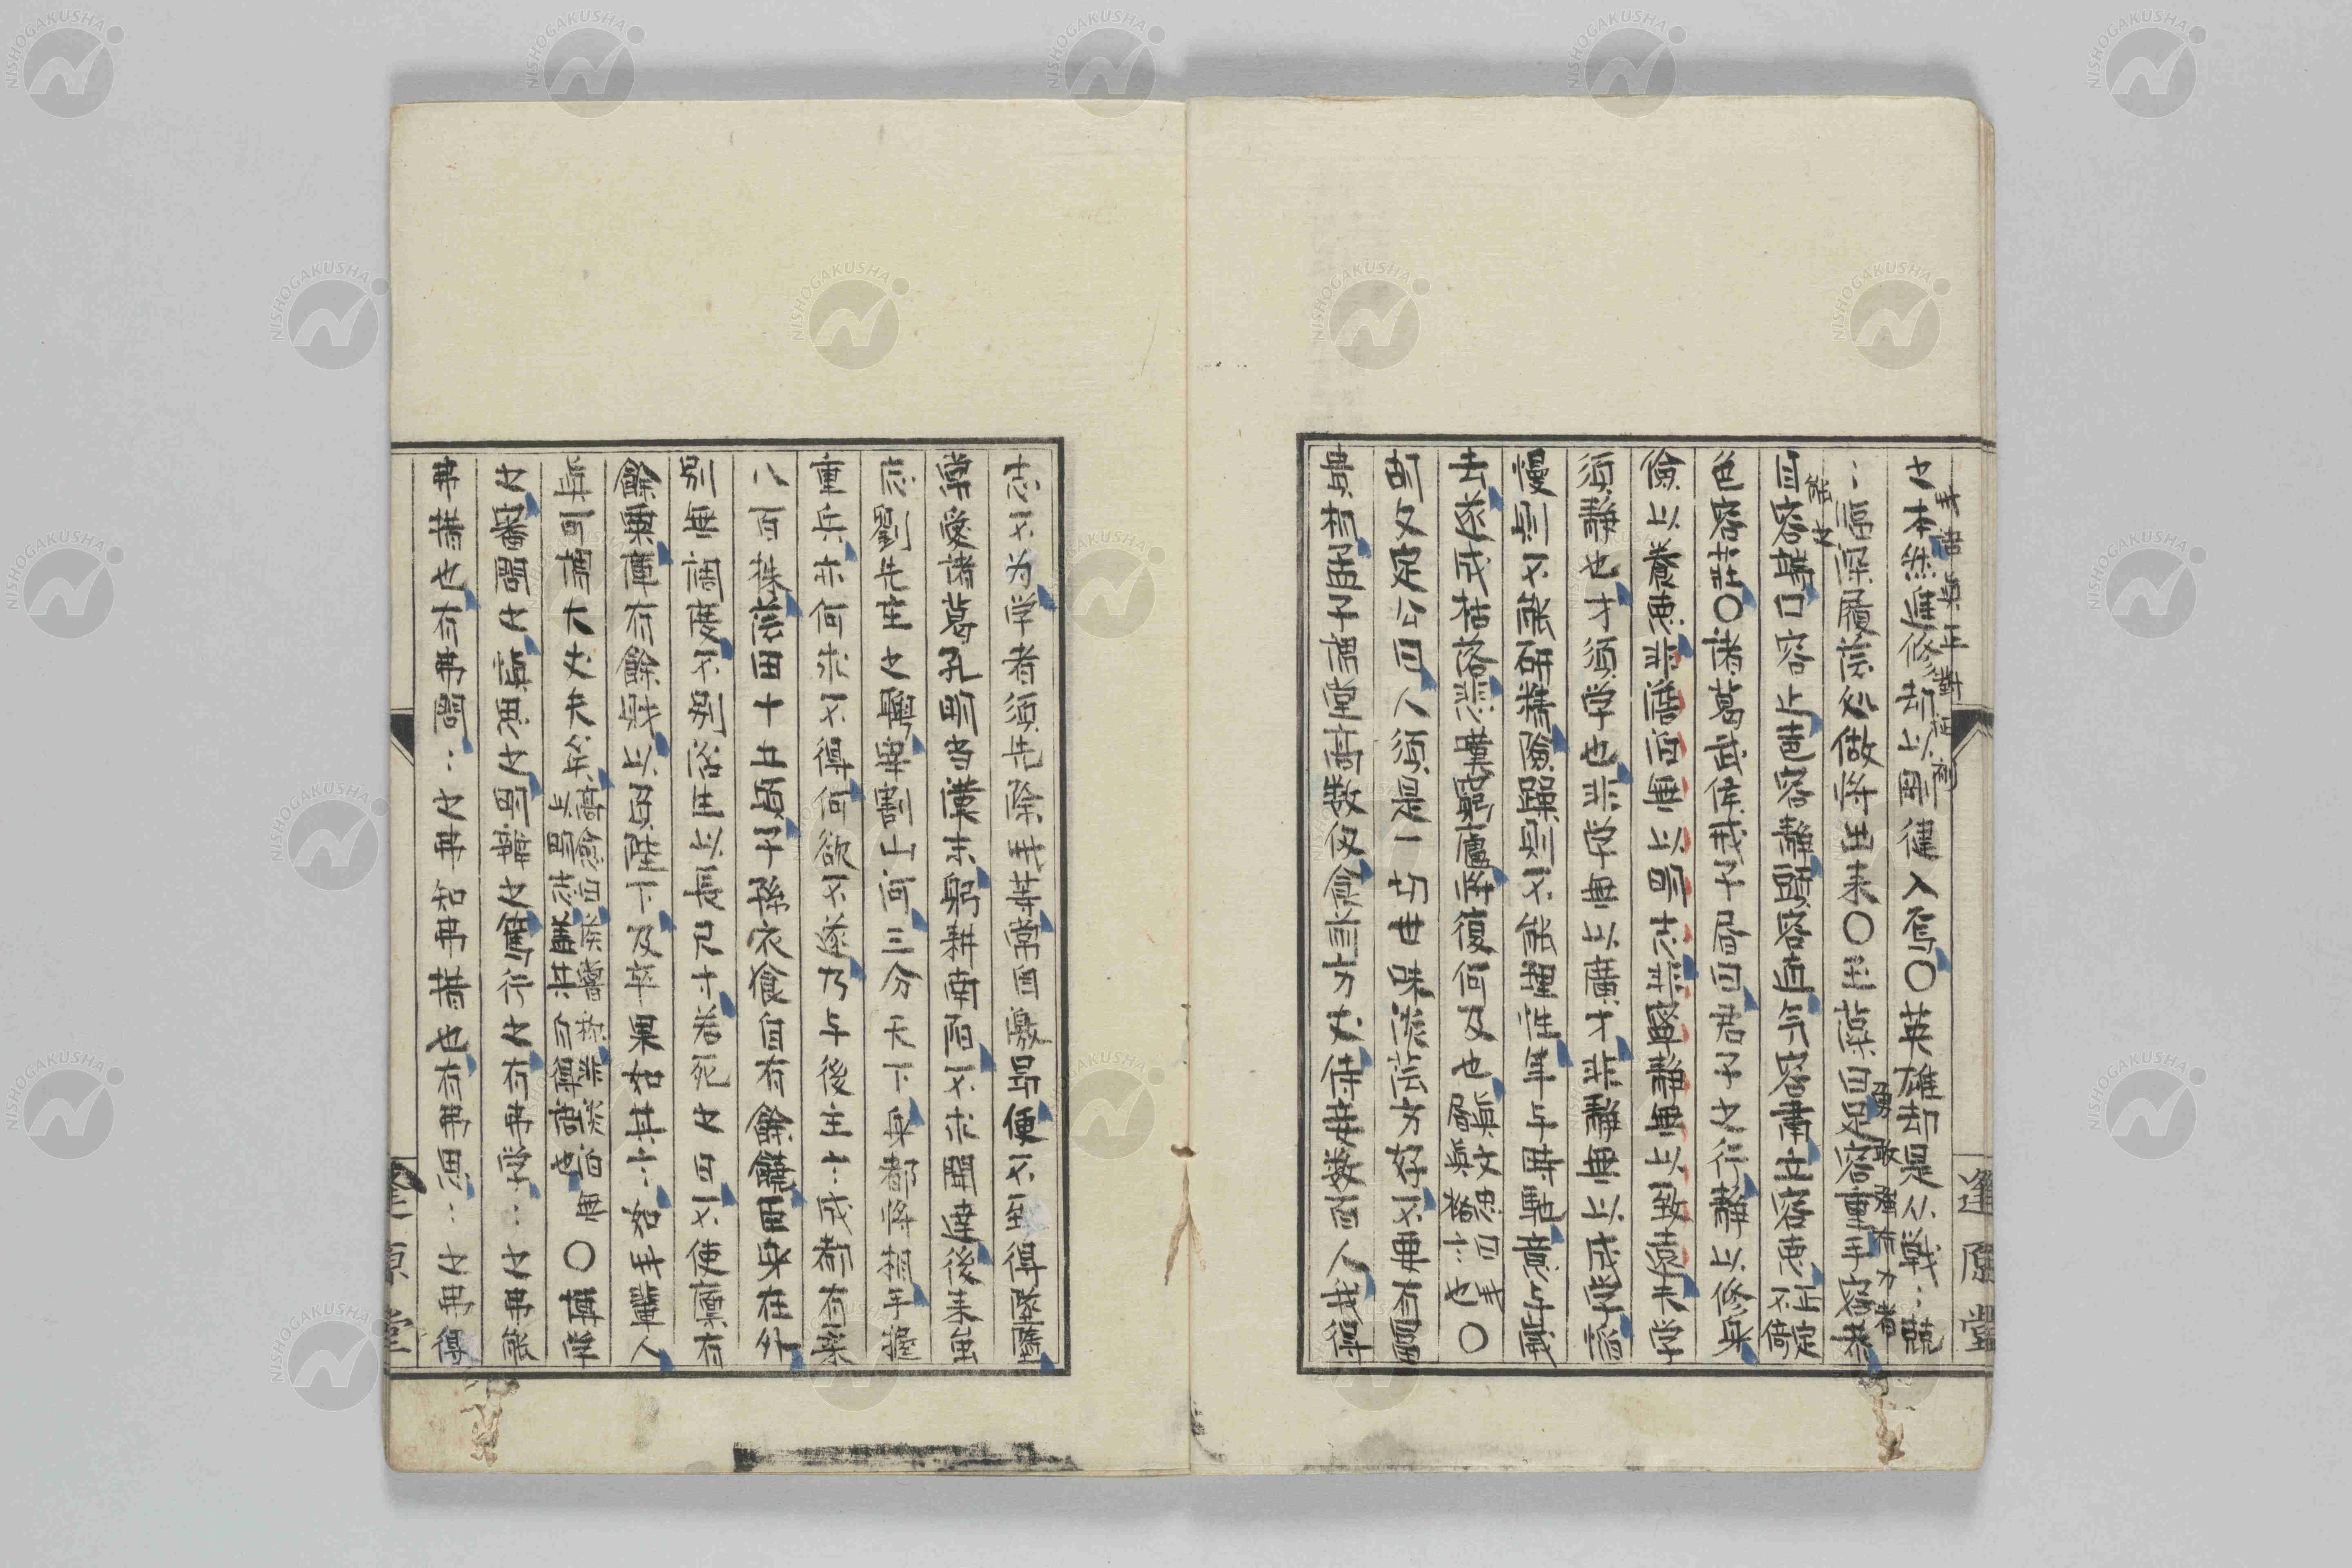 之本然進修却以剛健入焉〇英雄却是从戦〻兢
〻臨深履薄処做将出来〇玉藻曰足容重手容恭
勇敢強有力者
目容端口容止聲容静頭容直气容肅立容徳
色容荘〇諸葛武侯戒子書曰君子之行静以修身
儉以養徳非澹泊無以明志非寧静無以致遠夫学
須静也才須学也非学無以廣才非静無以成学慆
慢則不能研精險躁則不能理性年与時馳意与歳
去遂成枯落悲嘆窮廬将復何及也 真文忠曰 〇
胡文定公曰人須是一切世味淡薄方好不要有富
貴相孟子謂堂高数仞食前方丈侍妾数百人我得
逢原堂
志不为学者須先除我等常自激昂便不到得墜墮
常愛諸葛孔明当漢末躬耕南陽不求聞達後来虽
応劉先主之聘宰割山河三分天下身都将相手握
重兵亦何求不得何欲不遂乃与後主言成都有桑
八百株薄田十五頃子孫衣食自有餘饒臣身在外
別無調度不別治生以長尺寸若死之日不使廩有
餘粟庫有餘財以負陛下及卒果如其言 輩人
真可謂大丈夫矣 高愈曰侯嘗称非淡泊無以明志 〇博学
之審問之慎思之明辯之篤行之有弗学〻之弗能
弗措也有弗問〻之弗知弗措也有弗思〻之弗得
逢原堂
NISHOGAKUSHA